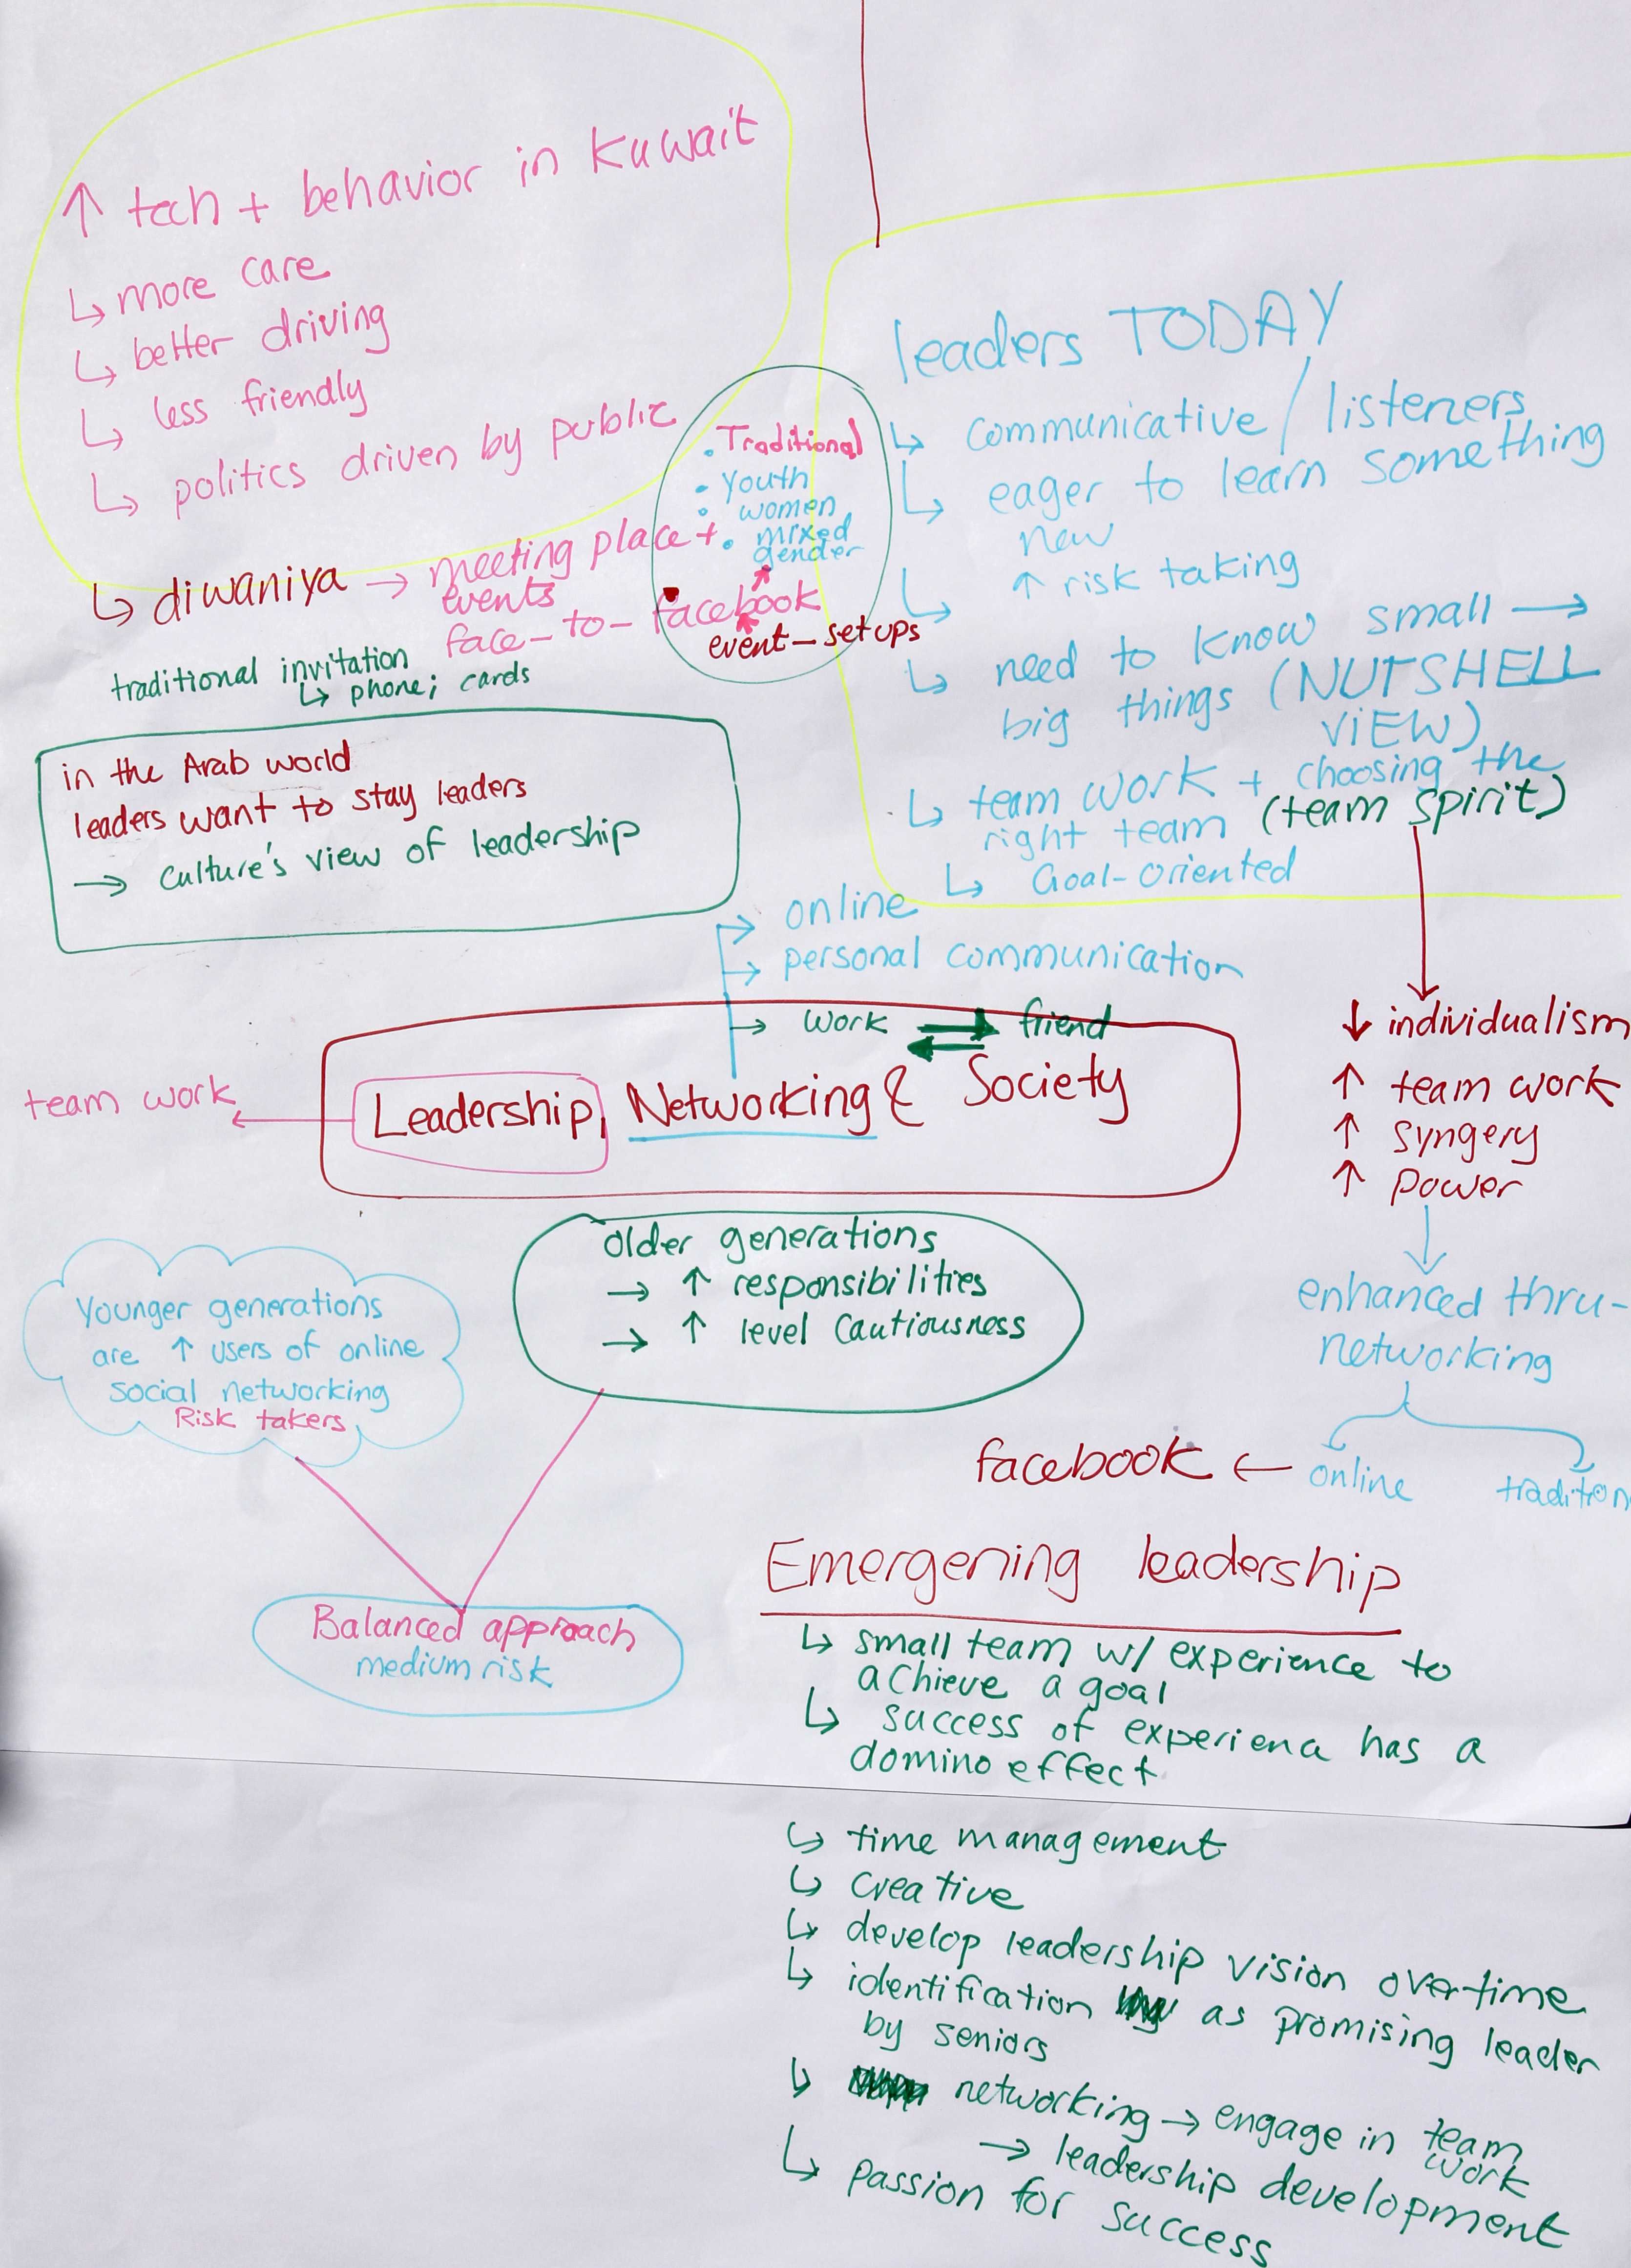 ↑ tech + behavior in Kuwait
↳ more care
↳ better driving
↳ less friendly
↳ politics driven by public
↳ diwaniya → meeting place +
events
face-to-facebook
• Traditional
• youth
• women
• mixed
gender
event-setups
traditional invitation
↳ phone; cards
in the Arab world
leaders want to stay leaders
→ culture's view of leadership
leaders TODAY
↳ communicative / listeners
↳ eager to learn something
new
↳ ↑ risk taking
↳ need to know small →
big things (NUTSHELL
VIEW)
↳ team work + choosing the
right team (team spirit)
↳ Goal-oriented
↓ individualism
↑ team work
↑ syngery
↑ power
enhanced thru-
networking
facebook ← online
tradition
→ online
→ personal communication
→ work ⇄ friend
Leadership, Networking & Society
team work
Older generations
→ ↑ responsibilities
→ ↑ level cautiousness
Younger generations
are ↑ users of online
social networking
Risk takers
Balanced approach
medium risk
Emergening leadership
↳ small team w/ experience to
achieve a goal
↳ success of experienc has a
domino effect
↳ time management
↳ creative
↳ develop leadership vision overtime
↳ identification as promising leader
by seniors
↳ networking → engage in team
work
→ leadership development
↳ passion for success